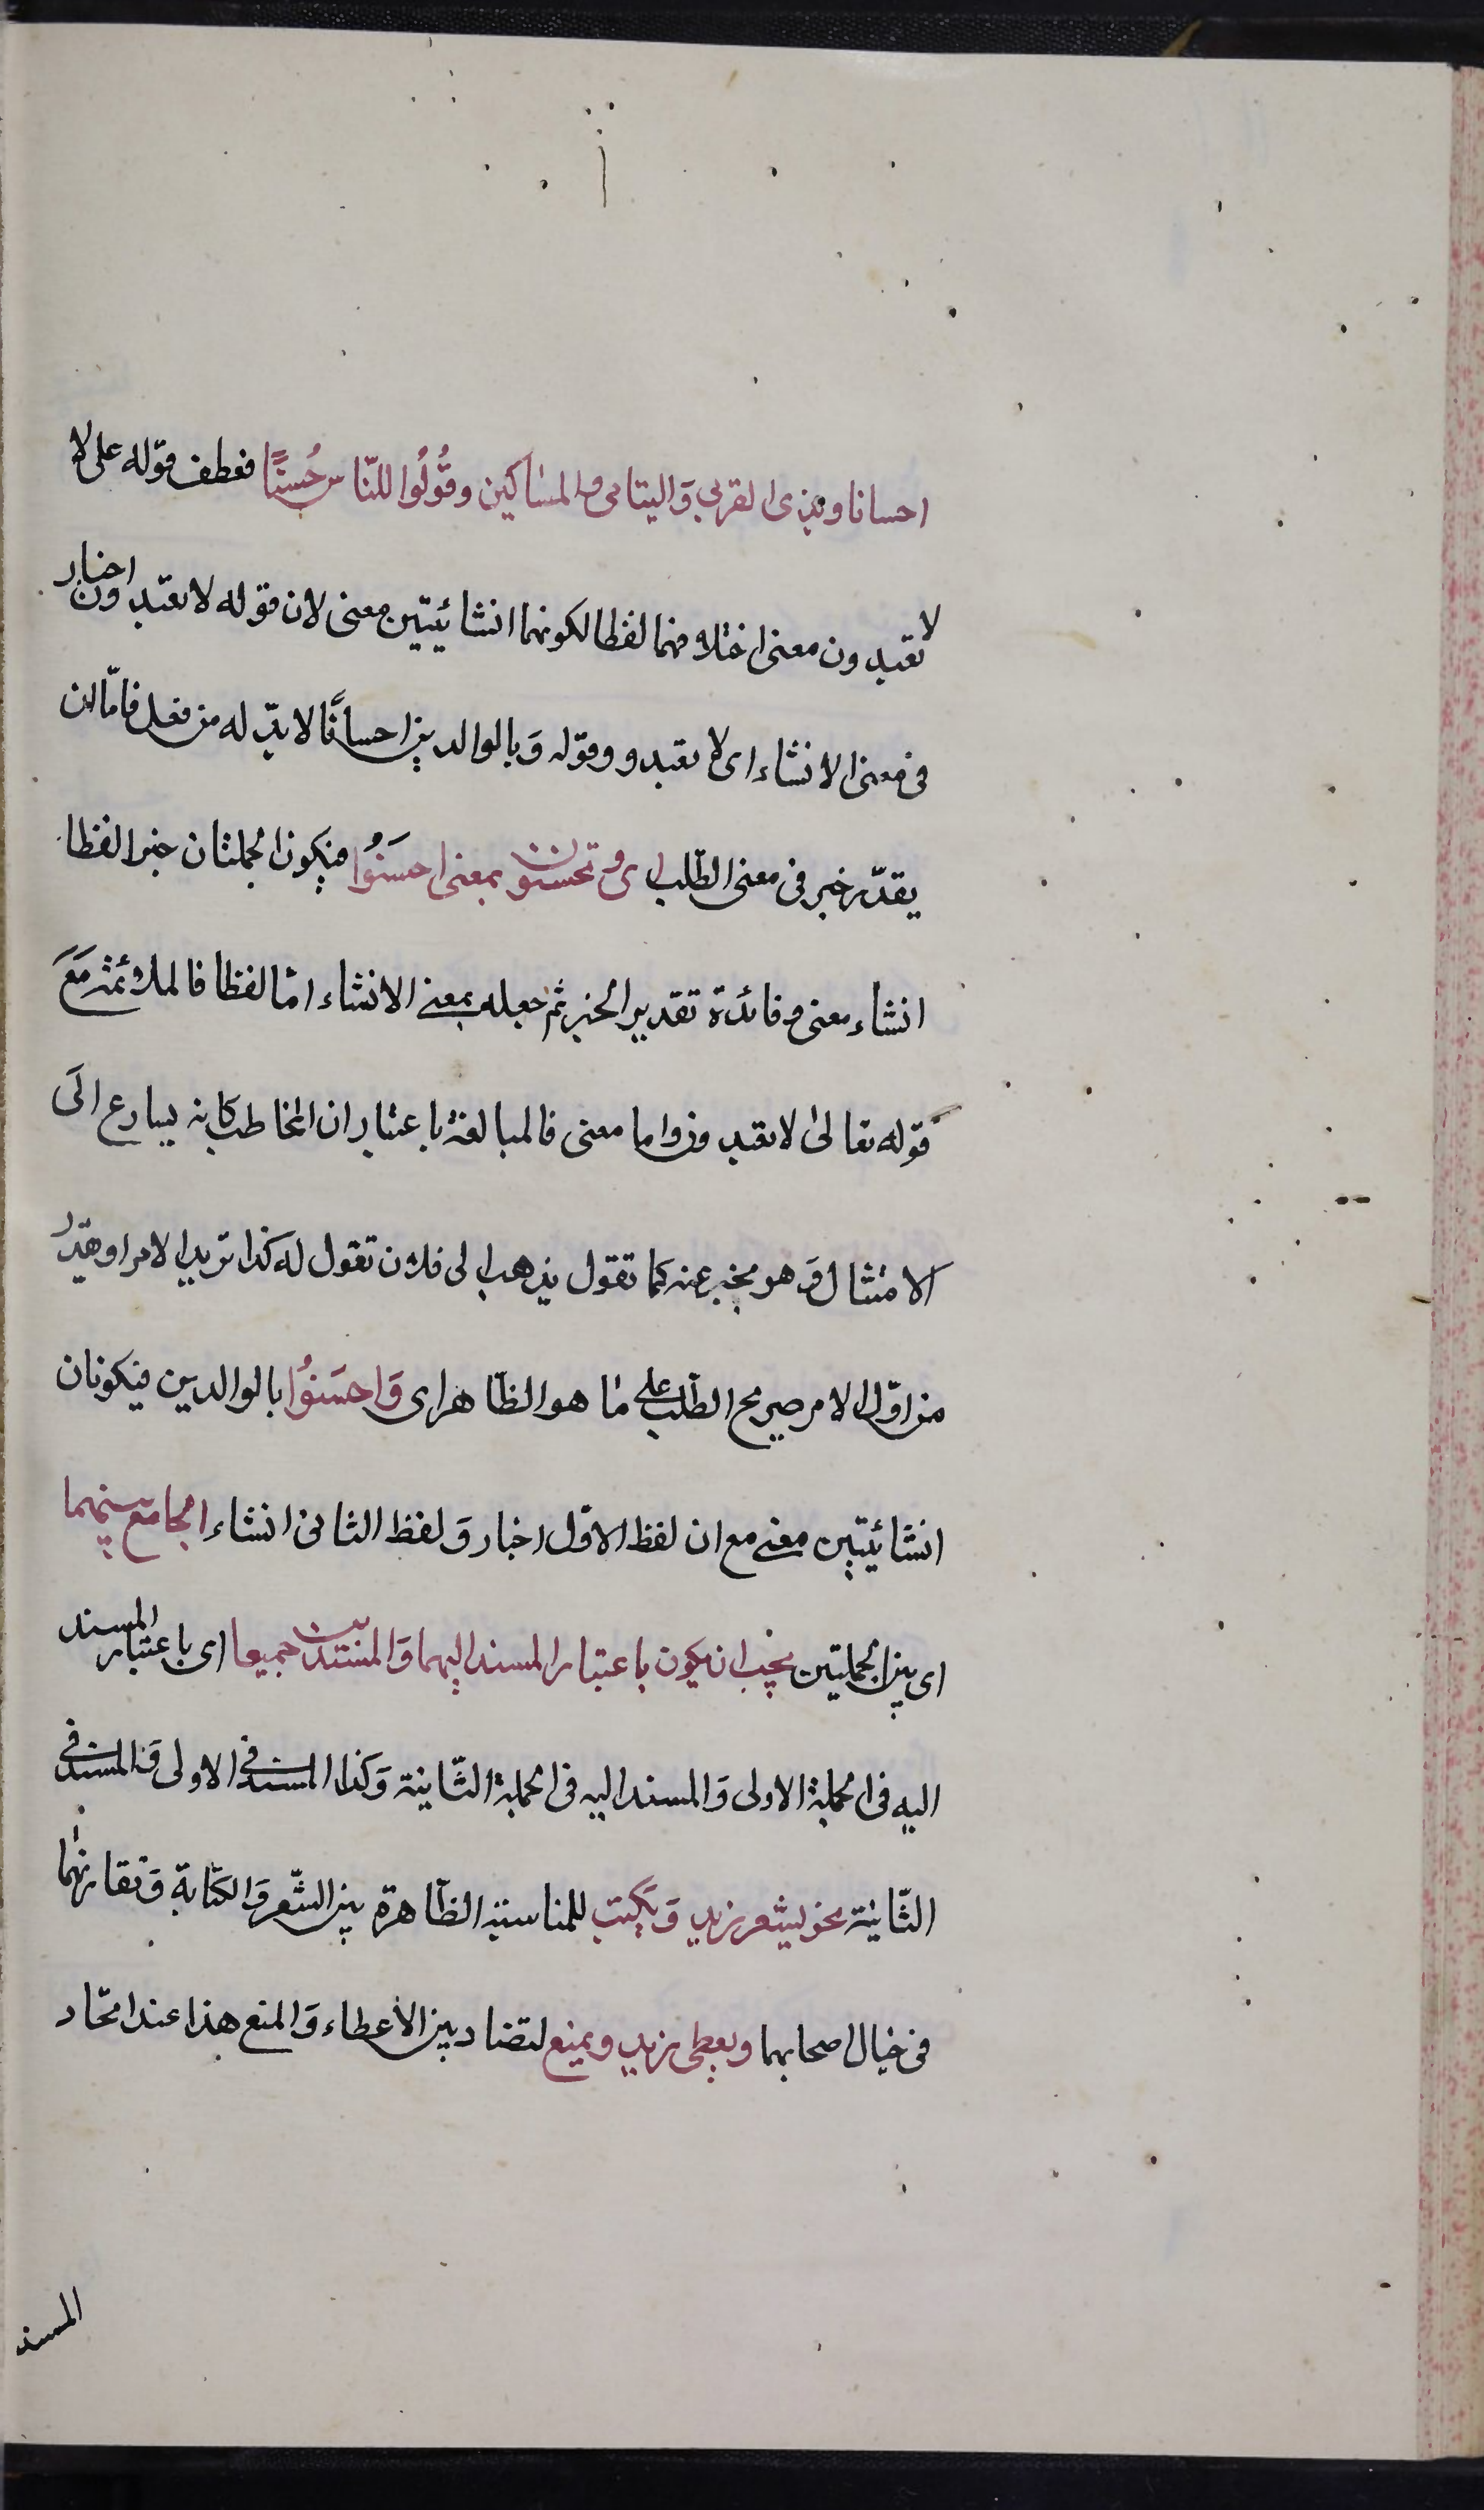 احسانا وبذى القربى وَاليتامى والمساكين وقُولُوا للنّاس حُسنًا فعطف قوله على لا
لا تعبدون معنى اختلافهما لفظا لكونهما انشائيتين معنى لان قوله لا تعبدون اخبار
فى معنى الانشاء اى لا تعبدو وقوله وَبالوالدين احسانًا لا بدّ له من فعل فامّا ان
يقدّر خبر فى معنى الطّلب اى وتحسنون بمعنى احسَنوُا فيكون الجملتان خبرا لفظا
انشاء معنى وفائدة تقدير الخبر ثم جعله بمعنى الانشاء امّا لفظا فالملائمة مَعَ
قوله تعالى لا تعبدون واما معنى فالمبالغة باعتبار ان المخاطب كانه يسارع الَى
الامتثال وَهو مخبر عنه كما تقول يذهب الى فلان تقول له كذا تريد الامر اوهقدّر
من اوّل الامر صريح الطّلب على مٰا هو الظّاهر اى وَاحسَنوُا بالوالدين فيكونان
انشائيتين معنى مع ان لفظ الاوّل اخبار وَلفظ الثانى انشاء الجامع بينهما
اى بين الجملتين يجب ان يكون باعتبار المسند اليهما وَالمسندين جميعا اى باعتبار المسند
اليه فى الجملة الاولى وَالمسند اليه فى الجملة الثّانية وَكذا المسند فى الاولى وَالمسند فى
الثّانية نحو يشعر زيد وَيَكتب للمناسبة الظّاهرة بين الشّعر وَالكتابة وَتقارنهٰما
فى خيال اصحابهما ويعطى زيد ويمنع لتضاد بين الأعطاء وَالمنع هذا عند اتحّاد
المسند